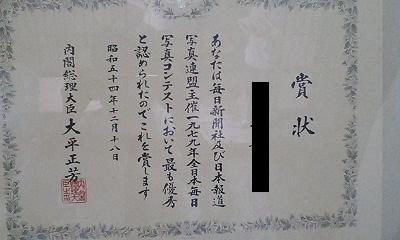 賞状
あなたは毎日新聞社及び日本報道
写真連盟主催一九七九年全日本毎日
写真コンテストにおいて最も優秀
と認められたのでこれを賞します
昭和五十四年十二月十八日
内閣総理大臣 大平正芳